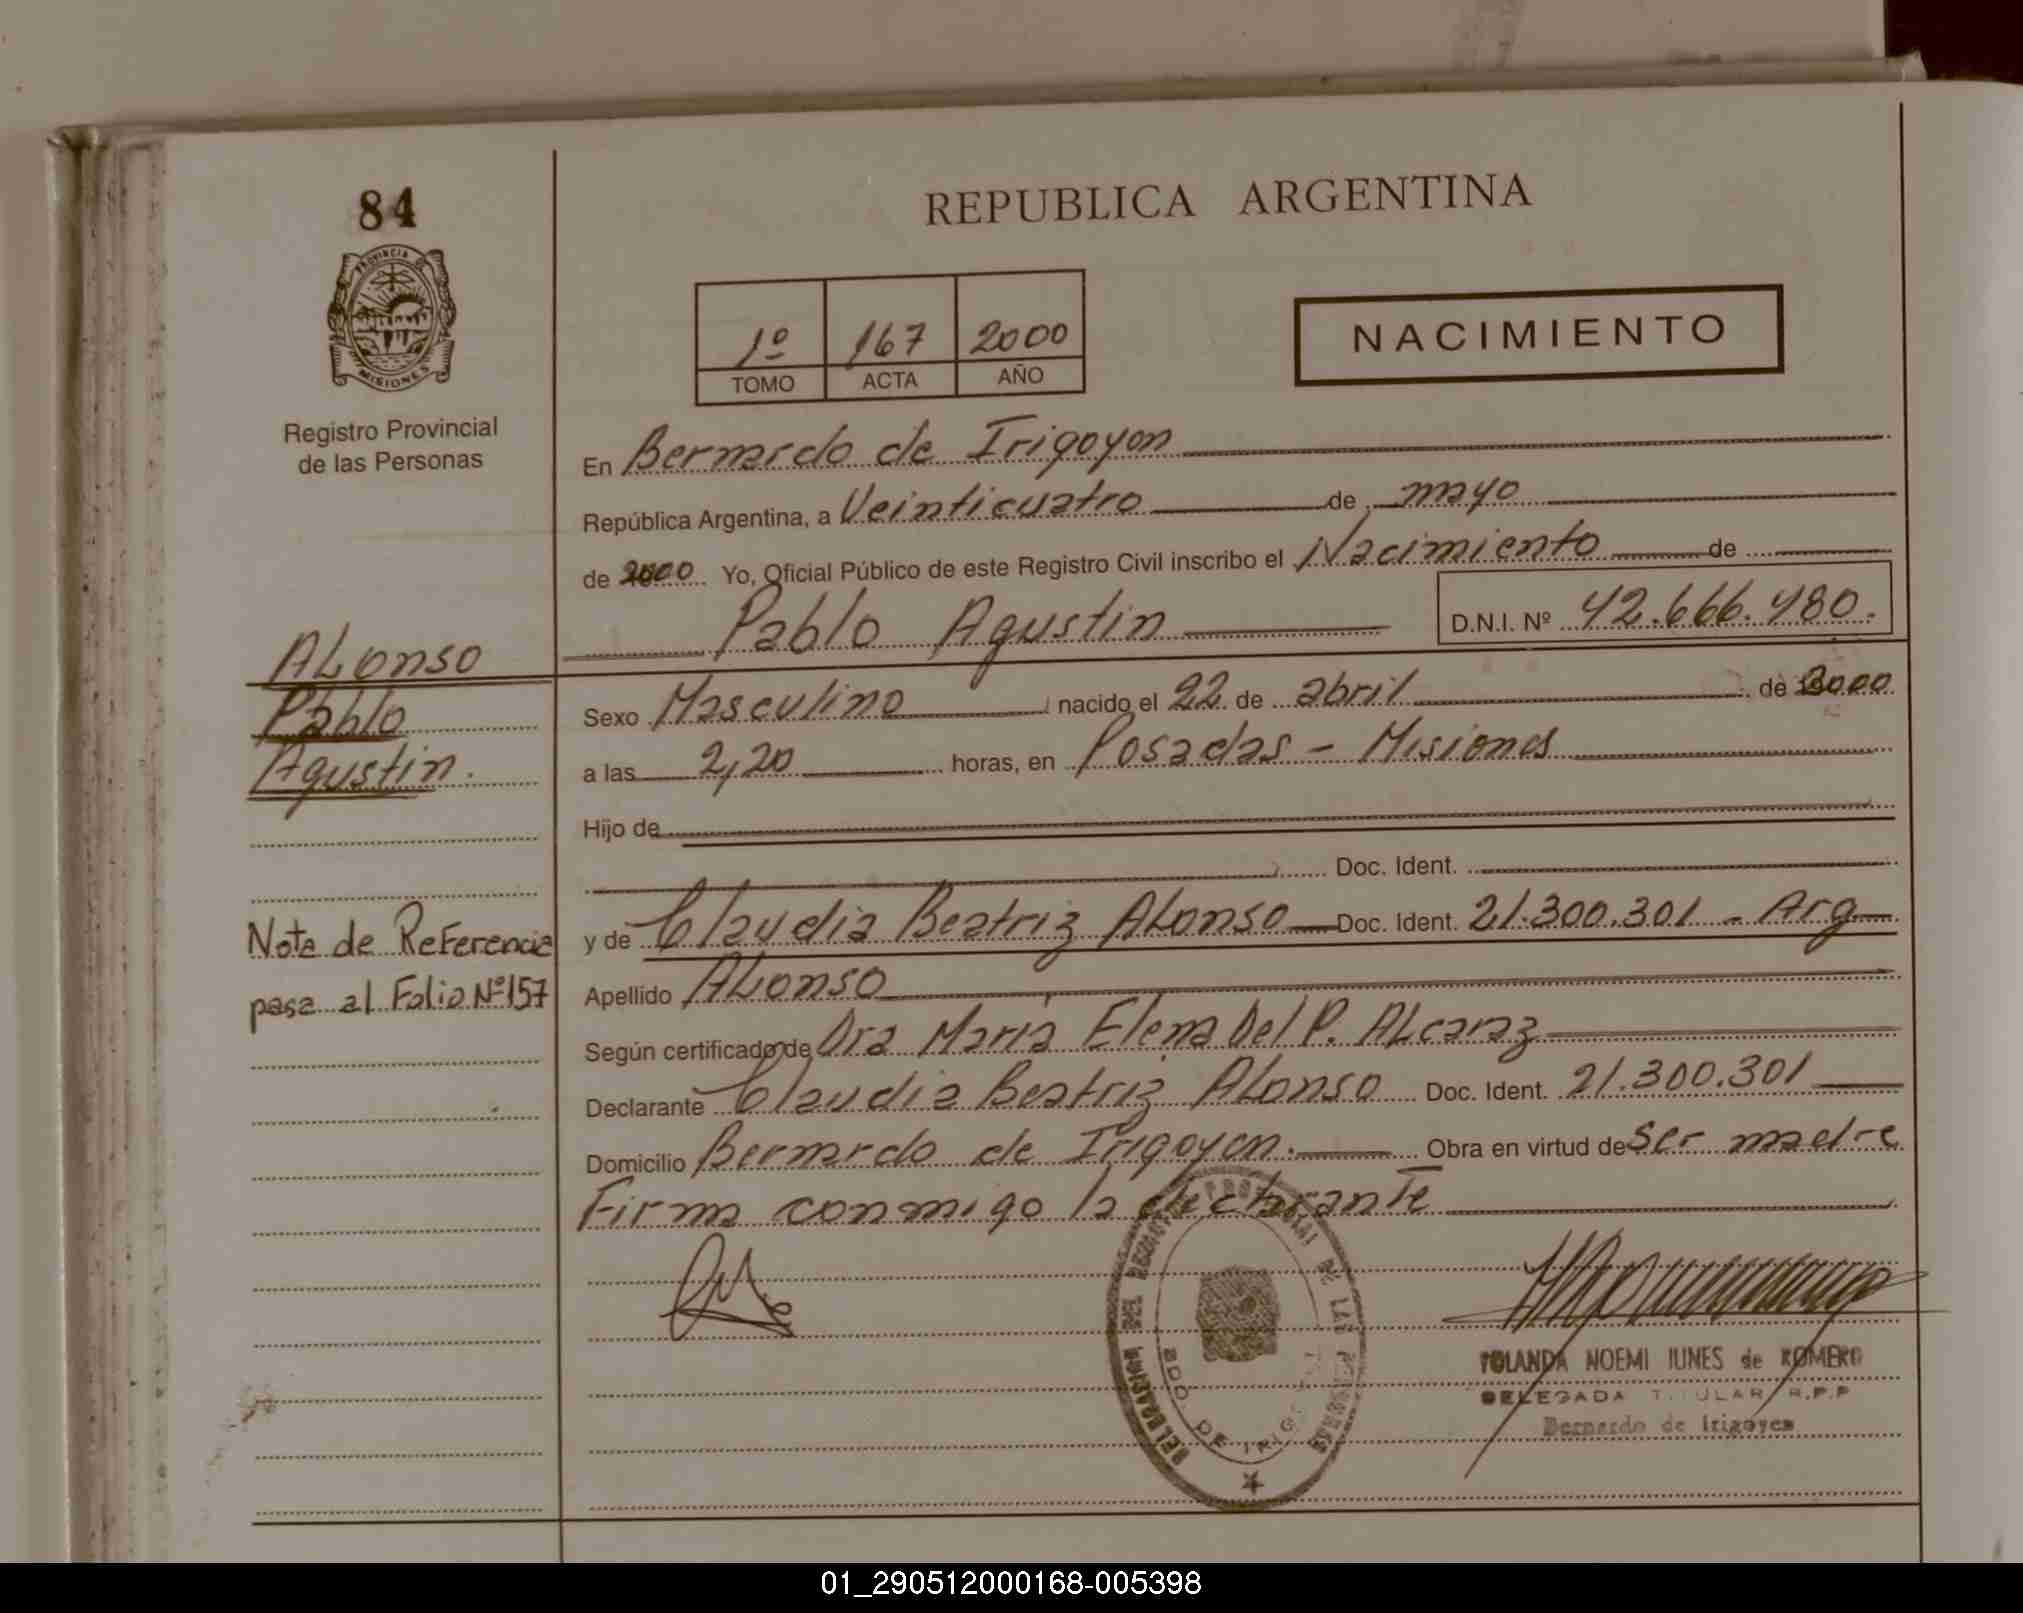 84
REPUBLICA ARGENTINA
PROVINCIA DE
MISIONES
Registro Provincial
de las Personas
1º 167 2000
TOMO ACTA AÑO
NACIMIENTO
En Bernardo de Irigoyen
República Argentina, a Veinticuatro de mayo
de 2000 Yo, Oficial Público de este Registro Civil inscribo el Nacimiento de
Pablo Agustin D.N.I. Nº 42.666.480.
ALonso
Pablo
Agustin.
Sexo Masculino nacido el 22 de abril de 2000
a las 2,20 horas, en Posadas - Misiones
Hijo de
Doc. Ident.
y de Claudia Beatriz ALonso Doc. Ident. 21.300.301 - Arg
Nota de Referencia
pasa al Folio Nº157
Apellido ALonso
Según certificado de Dra María Elena Del P. ALcaraz
Declarante Claudia Beatriz ALonso Doc. Ident. 21.300.301
Domicilio Bernardo de Irigoyen. Obra en virtud de ser madre
Firma conmigo la declarante
YOLANDA NOEMI IUNES de ROMERO
DELEGADA TITULAR R.P.P
Bernardo de Irigoyen
01_290512000168-005398